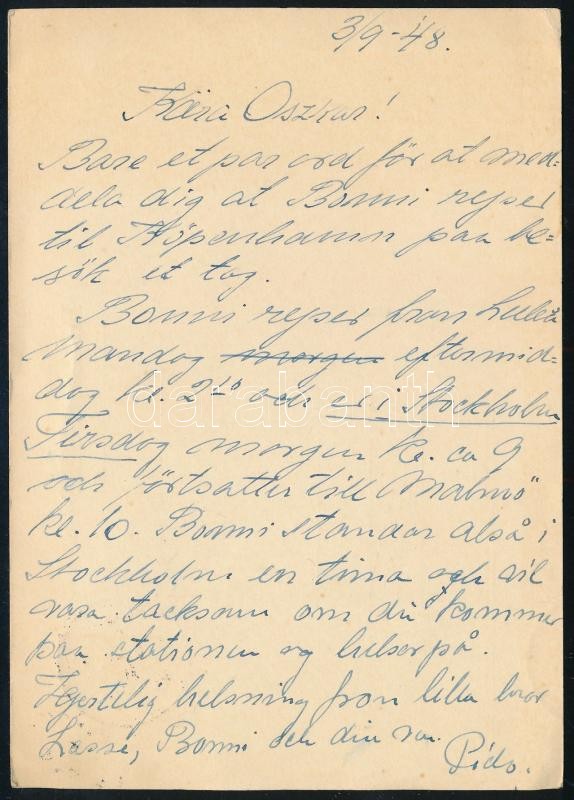 3/9-48.
Kära Oszkar!
Bare et par ord för at med=
dela dig at Bonni rejser
til Köpenhamn paa be=
sök et tag.
Bonni rejser fron Luleå
mandag morgen eftermid=
dag kl. 2 10 och er i Stockholm
Tirsdag morgen kl. ca 9
och förtsatter till Malmö
kl. 10. Bonni standar alså i
Stockholm en tima och vil
vara tacksam om du kommer
paa stationen og helser på.
Hjertelig helsning fron lilla bror
Lasse, Bonni och din van
Pido.
darabanth